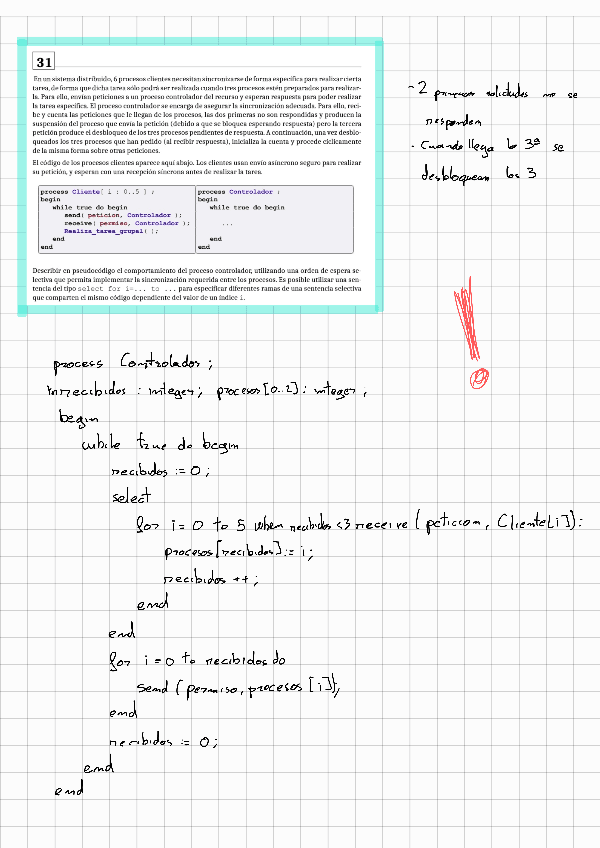 31
En un sistema distribuido, 6 procesos clientes necesitan sincronizarse de forma específica para realizar cierta
tarea, de forma que dicha tarea sólo podrá ser realizada cuando tres procesos estén preparados para realizar-
la. Para ello, envían peticiones a un proceso controlador del recurso y esperan respuesta para poder realizar
la tarea específica. El proceso controlador se encarga de asegurar la sincronización adecuada. Para ello, reci-
be y cuenta las peticiones que le llegan de los procesos, las dos primeras no son respondidas y producen la
suspensión del proceso que envía la petición (debido a que se bloquea esperando respuesta) pero la tercera
petición produce el desbloqueo de los tres procesos pendientes de respuesta. A continuación, una vez desblo-
queados los tres procesos que han pedido (al recibir respuesta), inicializa la cuenta y procede cíclicamente
de la misma forma sobre otras peticiones.
El código de los procesos clientes aparece aquí abajo. Los clientes usan envío asíncrono seguro para realizar
su petición, y esperan con una recepción síncrona antes de realizar la tarea.
process Cliente[ i : 0..5 ] ;
begin
while true do begin
send( peticion, Controlador );
receive( permiso, Controlador );
Realiza_tarea_grupal( );
end
end
process Controlador ;
begin
while true do begin
...
end
end
Describir en pseudocódigo el comportamiento del proceso controlador, utilizando una orden de espera se-
lectiva que permita implementar la sincronización requerida entre los procesos. Es posible utilizar una sen-
tencia del tipo select for i=... to ... para especificar diferentes ramas de una sentencia selectiva
que comparten el mismo código dependiente del valor de un índice i.
- 2 primeras solicitudes no se
responden
- Cuando llega la 3ª se
desbloquean los 3
process Controlador ;
recibidos : integer; procesos[0..2] : integer ;
begin
while true do begin
recibidos := 0 ;
select
for i = 0 to 5 when recibidos <3 receive ( peticion, Cliente[i]):
procesos[recibidos] := i ;
recibidos ++ ;
end
end
for i = 0 to recibidos do
send ( permiso, procesos [i]);
end
recibidos := 0 ;
end
end